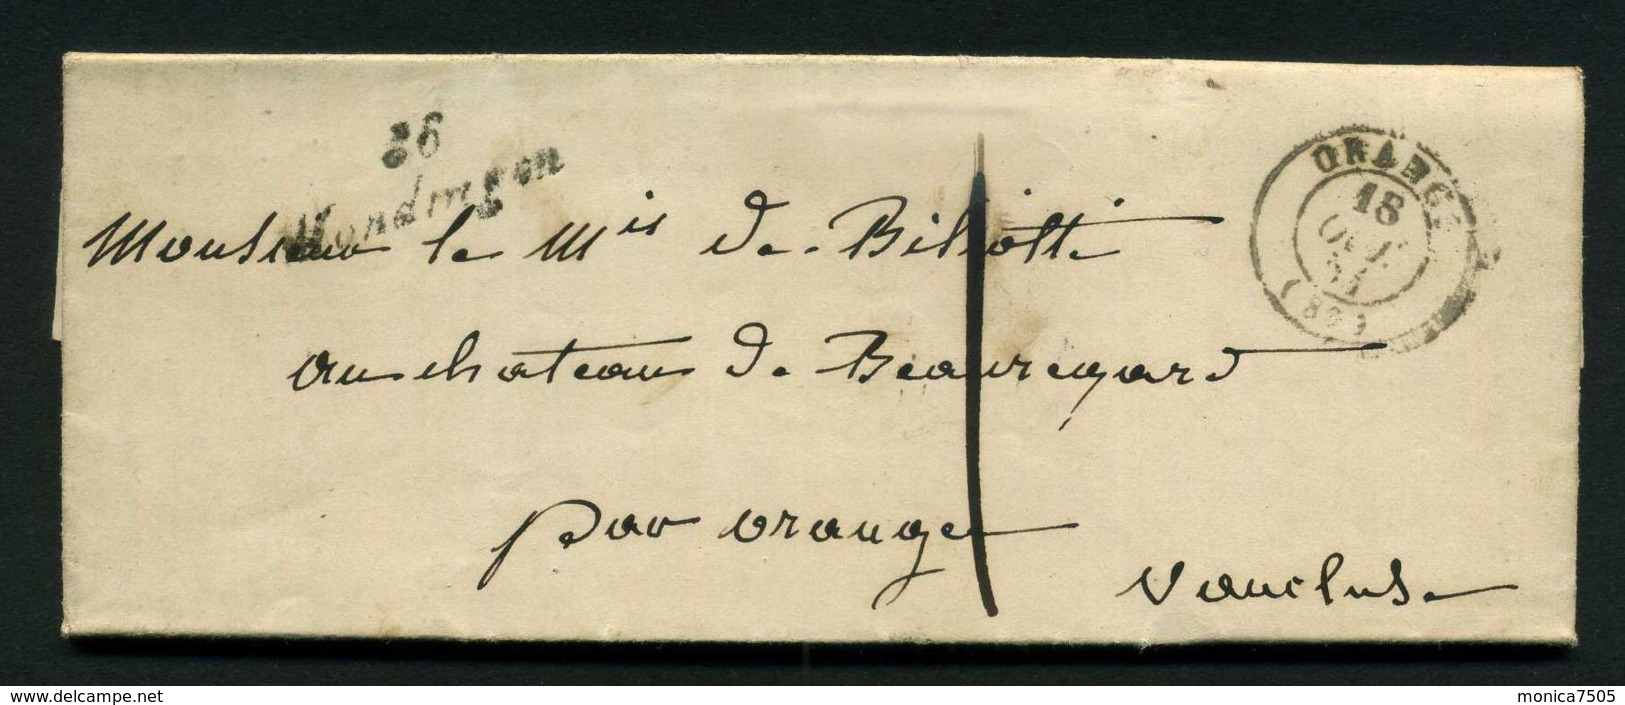 86
Mondragon
ORANGE
18
OCT.
51
(86)
Monsieur le Mis de Billiotti
au chateau de Beauregard
par orange
1
Vaucluse
delcampe.net
monica7505